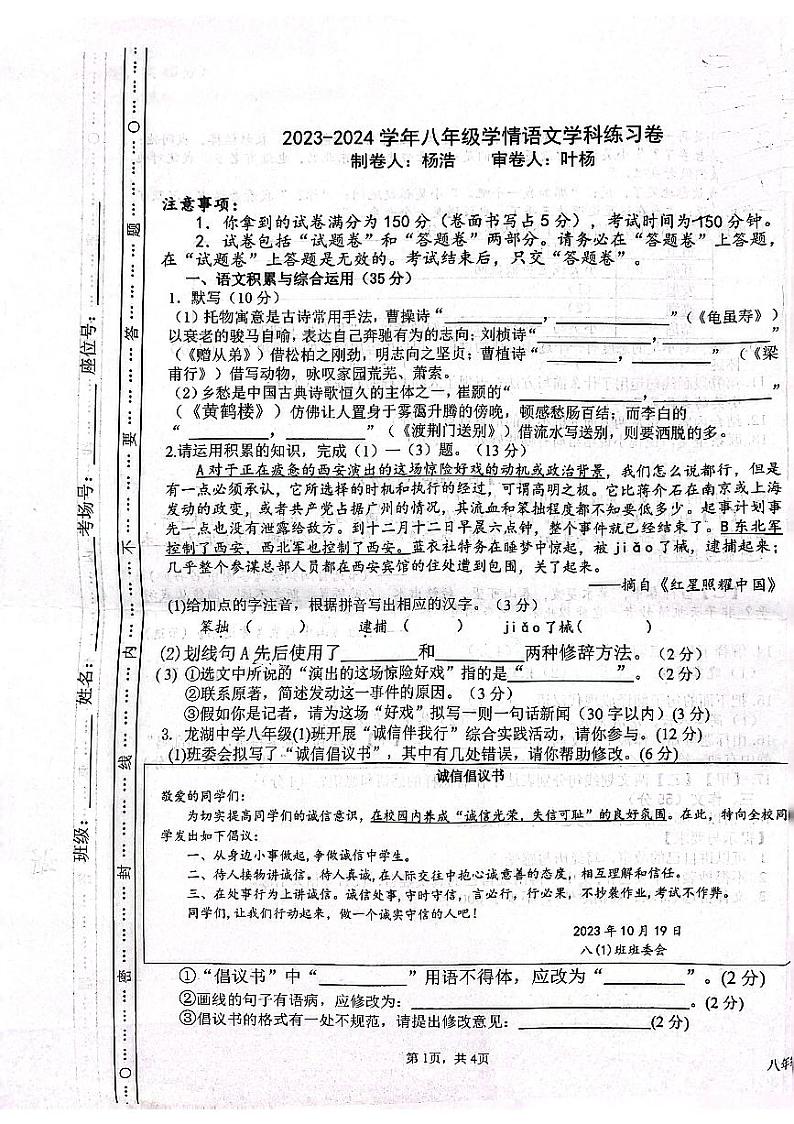 2023-2024 学年八年级学情语文学科练习卷
制卷人：杨浩 审卷人：叶杨
注意事项：
1．你拿到的试卷满分为 150 分（卷面书写占 5 分），考试时间为 150 分钟。
2．试卷包括“试题卷”和“答题卷”两部分。请务必在“答题卷”上答题，
在“试题卷”上答题是无效的。考试结束后，只交“答题卷”。
一、语文积累与综合运用（35 分）
1．默写（10 分）
（1）托物寓意是古诗常用手法，曹操诗“____________，____________”（《龟虽寿》）
以衰老的骏马自喻，表达自己奔驰有为的志向；刘桢诗“____________，____________”
（《赠从弟》）借松柏之刚劲，明志向之坚贞；曹植诗“________，________”（《梁
甫行》）借写动物，咏叹家园荒芜、萧索。
（2）乡愁是中国古典诗歌恒久的主体之一，崔颢的“____________，____________”
（《黄鹤楼》）仿佛让人置身于雾霭升腾的傍晚，顿感愁肠百结；而李白的
“________，________”（《渡荆门送别》）借流水写送别，则要洒脱的多。
2.请运用积累的知识，完成（1）—（3）题。（13 分）
A 对于正在疲惫的西安演出的这场惊险好戏的动机或政治背景，我们怎么说都行，但是
有一点必须承认，它所选择的时机和执行的经过，可谓高明之极。它比蒋介石在南京或上海
发动的政变，或者共产党占据广州的情况，其流血和笨拙程度都不知要低多少。起事计划事
先一点也没有泄露给敌方。到十二月十二日早晨六点钟，整个事件就已经结束了。B 东北军
控制了西安，西北军也控制了西安。蓝衣社特务在睡梦中惊起，被 jiǎo 了械，逮捕起来；
几乎整个参谋总部人员都在西安宾馆的住处遭到包围，关了起来。
——摘自《红星照耀中国》
(1)给加点的字注音，根据拼音写出相应的汉字。（3 分）
笨拙（ ） 逮捕（ ） jiǎo了械（ ）
(2)划线句 A 先后使用了________和________两种修辞方法。（2 分）
(3) ①选文中所说的“演出的这场惊险好戏”指的是“____________”。（2 分）
②联系原著，简述发动这一事件的原因。（3 分）
③假如你是记者，请为这场“好戏”拟写一则一句话新闻（30 字以内）(3 分)
3. 龙湖中学八年级(1)班开展“诚信伴我行”综合实践活动，请你参与。(12 分)
(1)班委会拟写了“诚信倡议书”，其中有几处错误，请你帮助修改。(6 分)
诚信倡议书
敬爱的同学们：
为切实提高同学们的诚信意识，在校园内养成“诚信光荣，失信可耻”的良好氛围。在此，特向全校同
学发出如下倡议：
一、从身边小事做起,争做诚信中学生。
二、待人接物讲诚信。待人真诚,在人际交往中抱心诚意善的态度，相互理解和信任。
三、在处事行为上讲诚信。诚信处事,守时守信，言必行，行必果，不抄袭作业,考试不作弊。
同学们,让我们行动起来，做一个诚实守信的人吧！
2023 年 10 月 19 日
八(1)班班委会
①“倡议书”中“________”用语不得体，应改为“________”。(2 分)
②画线的句子有语病，应修改为：____________________________。(2 分)
③倡议书的格式有一处不规范，请提出修改意见：____________(2 分)
第 1页，共 4页
八年
班级： 姓名： 考场号： 座位号：
密 封 线 内 不 要 答 题